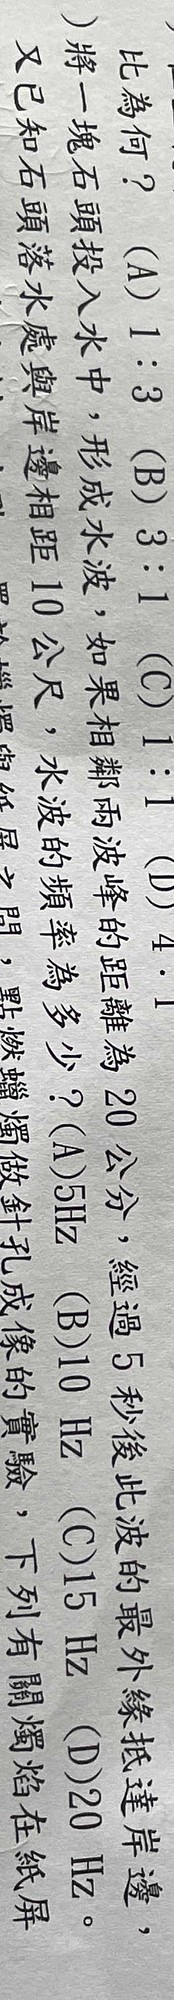 比為何? (A) 1:3 (B) 3:1 (C) 1:1 (D) 4
)將一塊石頭投入水中,形成水波,如果相鄰兩波峰的距離為20公分,經過5秒後此波的最外緣抵達岸邊,
又已知石頭落水處與岸邊相距10公尺,水波的頻率為多少?(A)5Hz (B)10 Hz (C)15 Hz (D)20 Hz。
蠟燭與紙屏之間,點燃蠟燭做針孔成像的實驗,下列有關燭焰在紙屏